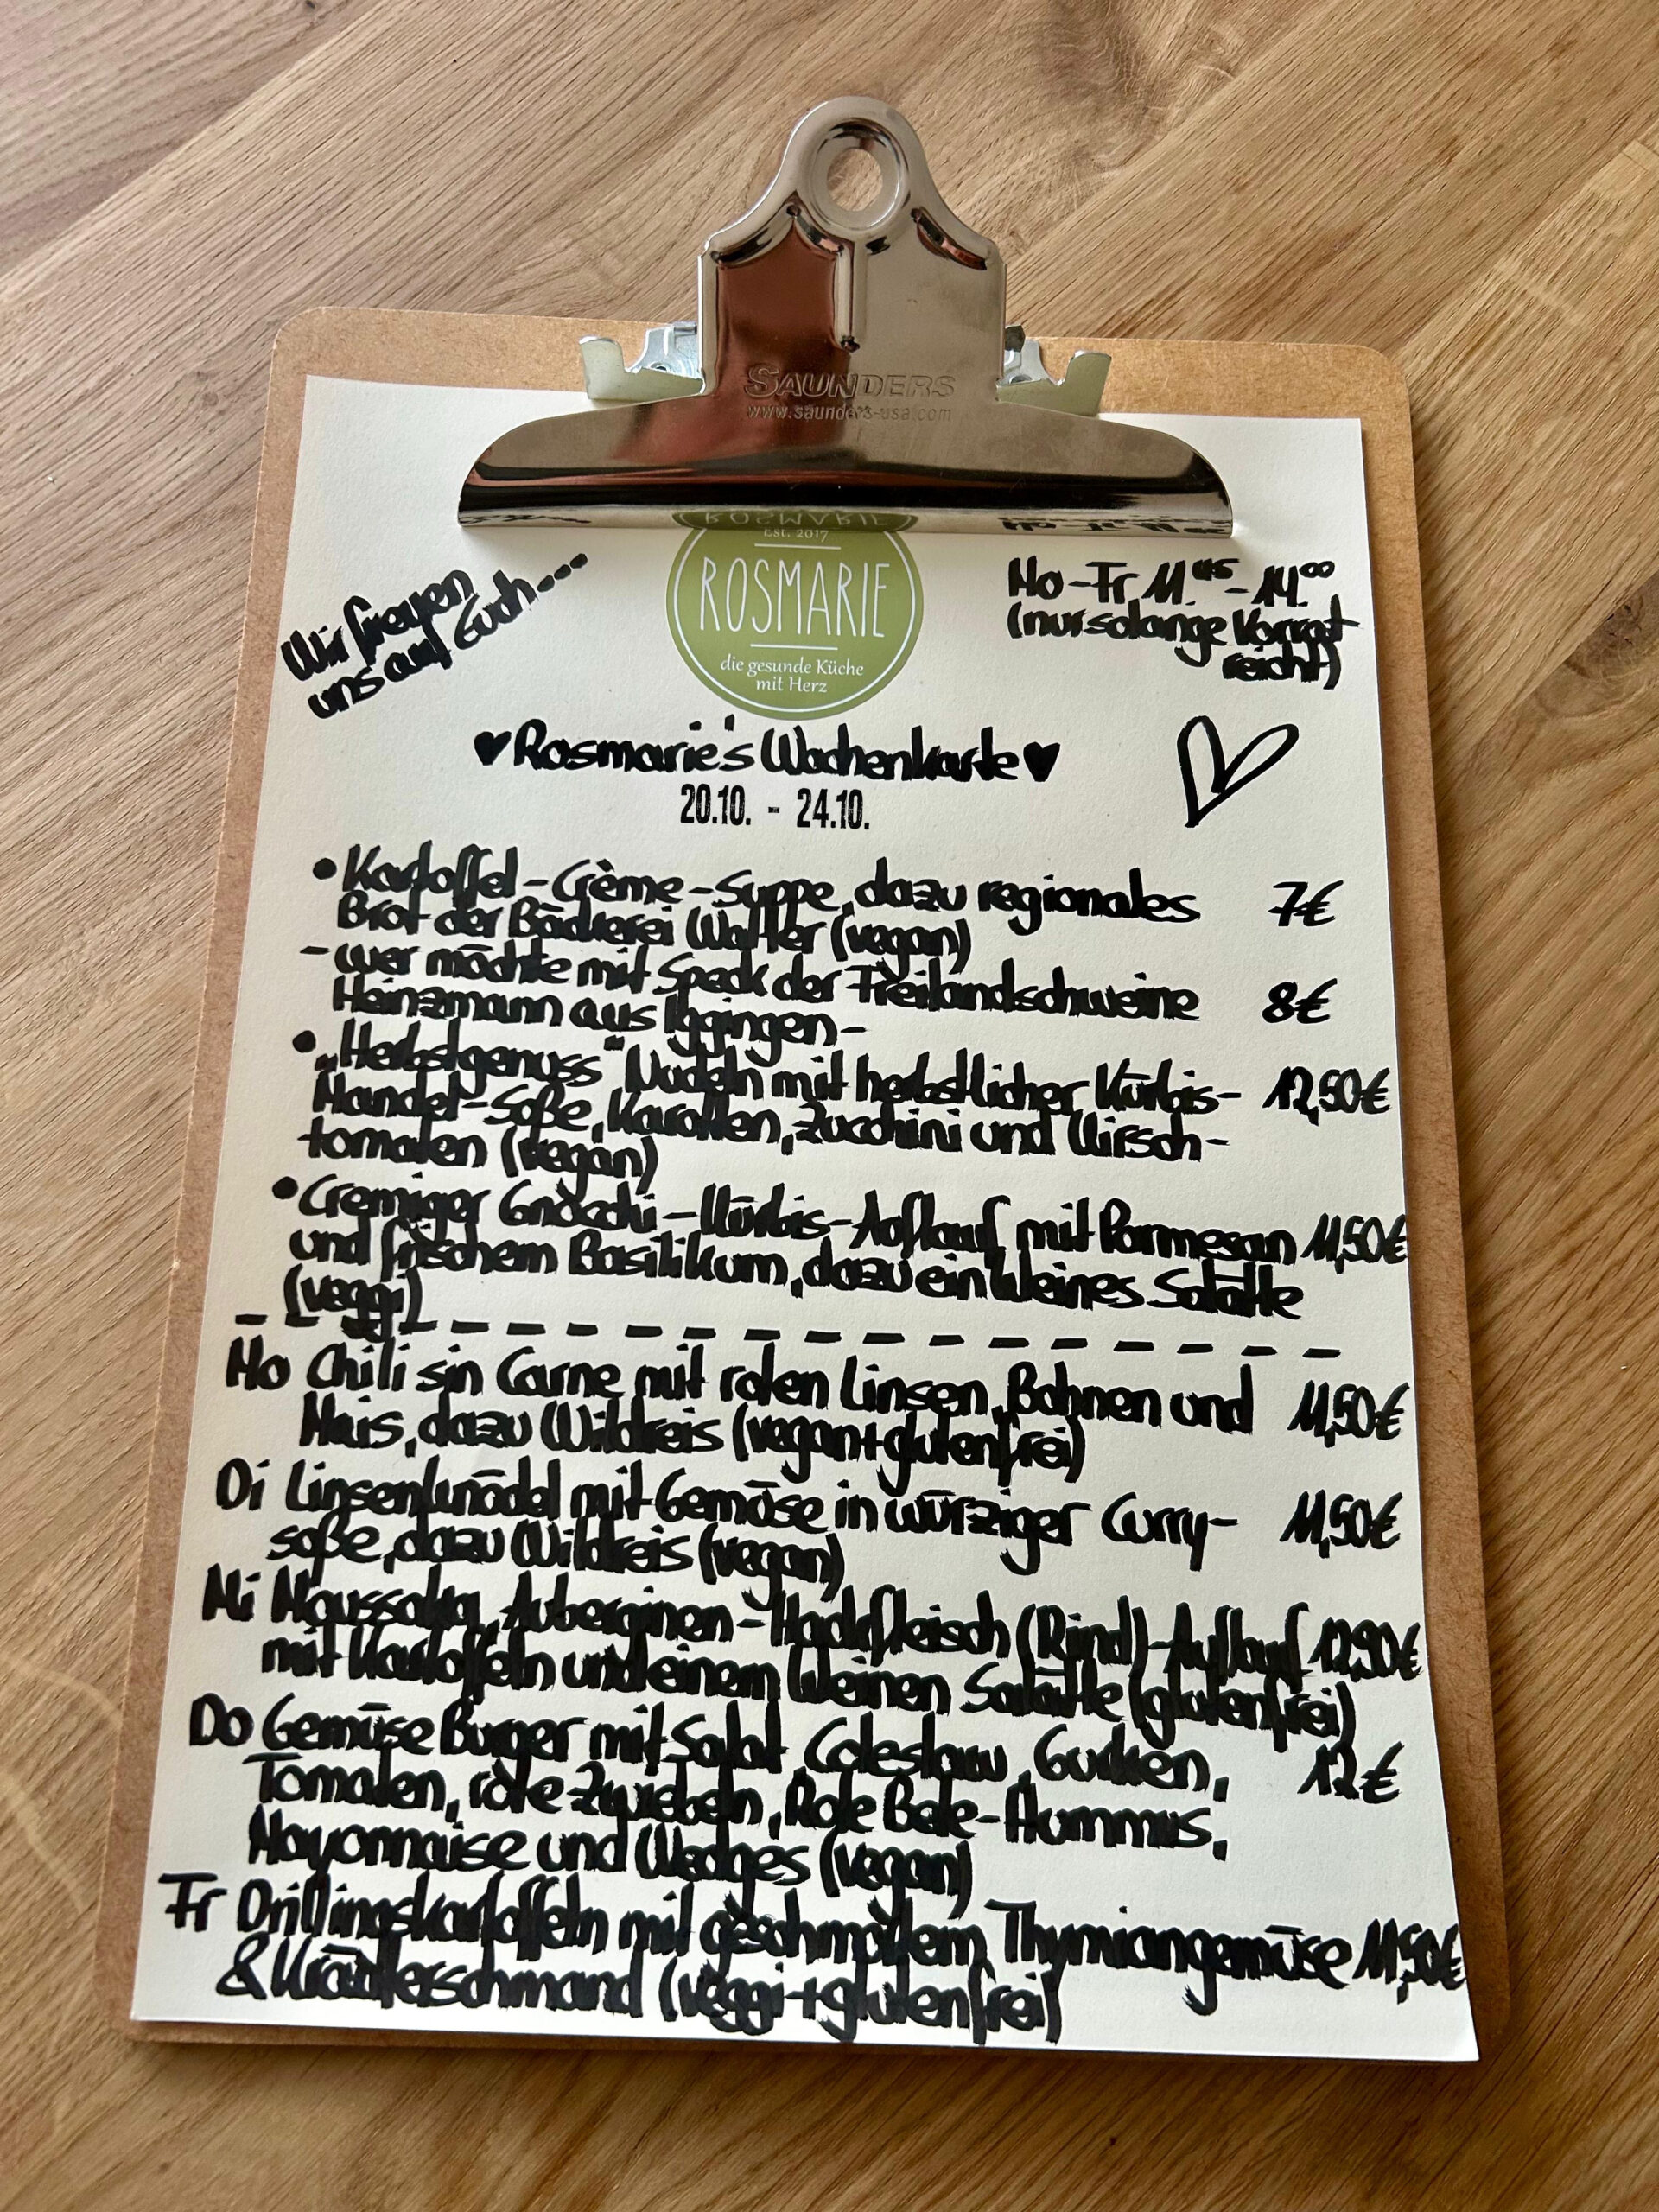 SAUNDERS
www.saunders-usa.com
Est. 2017
ROSMARIE
die gesunde Küche
mit Herz
Wir freuen
uns auf Euch...
Mo-Fr 11.45 - 14.00
(nur solange Vorrat
reicht)
♥Rosmarie's Wochenkarte♥
20.10. - 24.10.
•Kartoffel-Crème-Suppe, dazu regionales 7€
Brot der Bäckerei Walter (vegan)
- wer möchte mit Speck der Freilandschweine 8€
Heinzmann aus Iggingen -
•„Herbstgenuss" Nudeln mit herbstlicher Kürbis- 12,50€
Mandel-Soße, Karotten, Zucchini und Kirsch-
tomaten (vegan)
•Cremiger Gnocchi-Kürbis-Auflauf mit Parmesan 11,50€
und frischem Basilikum, dazu ein kleines Salätle
(veggi)
Mo Chili sin Carne mit roten Linsen, Bohnen und 11,50€
Mais, dazu Wildreis (vegan+glutenfrei)
Di Linsenknödel mit Gemüse in würziger Curry- 11,50€
soße, dazu Wildreis (vegan)
Mi Moussaka, Auberginen-Hackfleisch (Rind)-Auflauf 12,90€
mit Kartoffeln und einem kleinen Salätle (glutenfrei)
Do Gemüse Burger mit Salat, Coleslaw, Gurken, 12€
Tomaten, rote Zwiebeln, Rote Bete-Hummus,
Mayonnaise und Wedges (vegan)
Fr Drillingskartoffeln mit geschmortem Thymiangemüse 11,50€
& Kräuterschmand (veggi+glutenfrei)